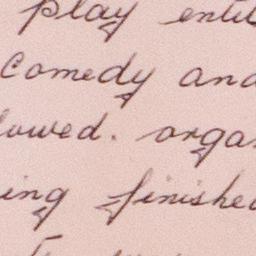 play entit
Comedy and
lowed. organ
ing finished